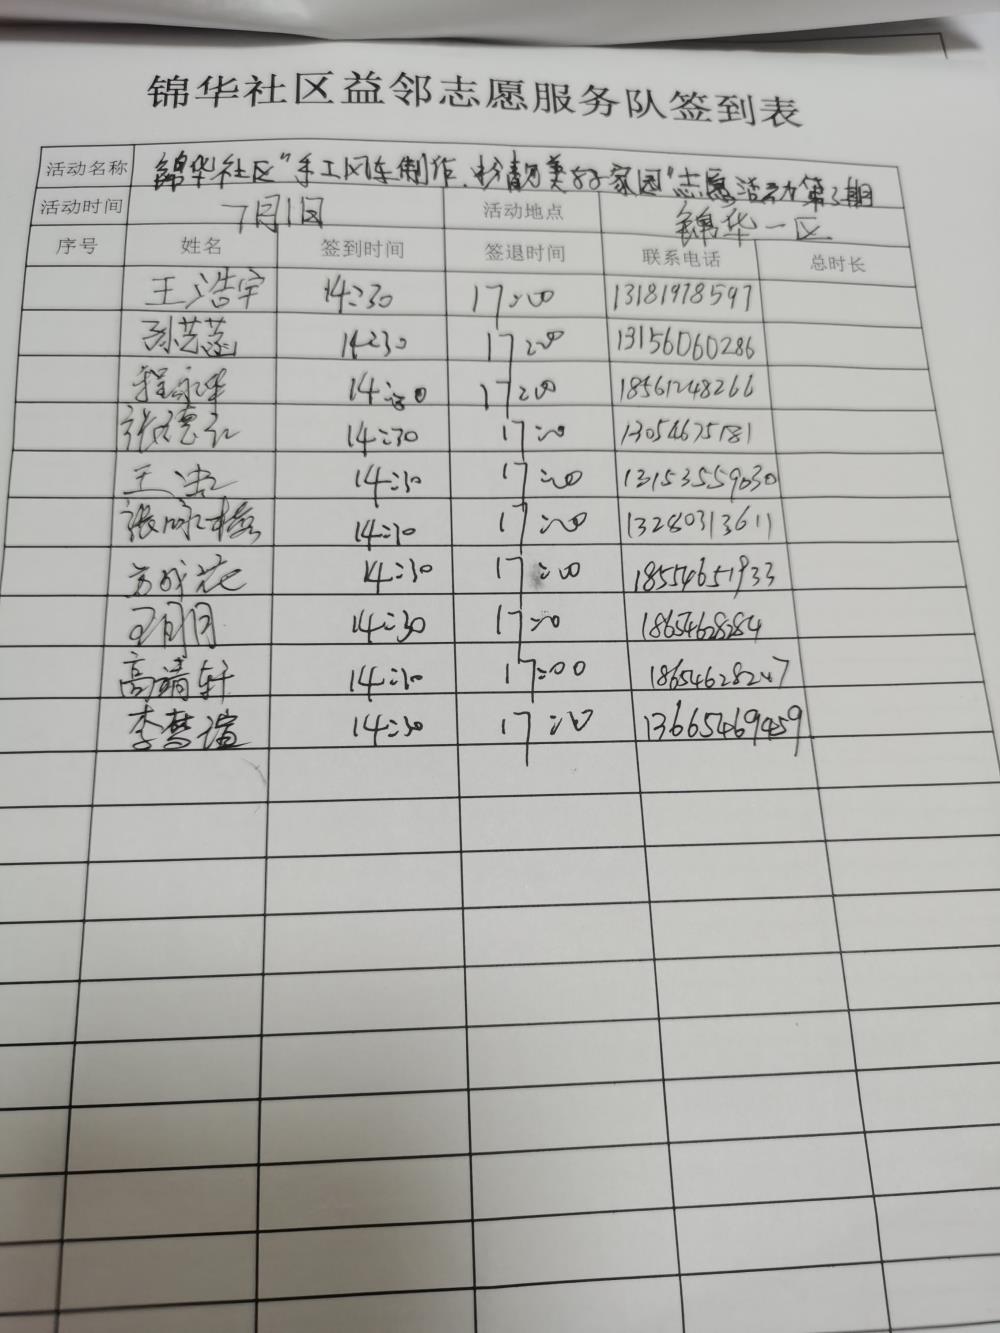 锦华社区益邻志愿服务队签到表
活动名称 锦华社区"手工风车制作,扮靓美好家园"志愿活动第3期
活动时间 7月1日 活动地点 锦华一区
序号 姓名 签到时间 签退时间 联系电话 总时长
王浩宇 14:30 17:00 13181978597
孙芸菡 14:30 17:00 13156060286
程永华 14:30 17:00 18561248266
张德 14:30 17:00 13054675181
王 14:30 17:00 13153559030
张咏梅 14:30 17:00 13280313611
成花 14:30 17:00 18554651933
14:30 17:00 18654628284
高靖轩 14:30 17:00 18654628247
李梦瑄 14:30 17:00 13665469459